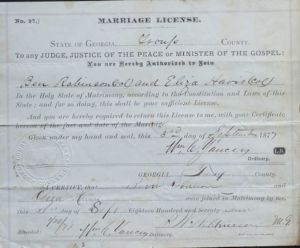 No. 37.)
MARRIAGE LICENSE.
STATE OF GEORGIA, Troup COUNTY.
To any JUDGE, JUSTICE OF THE PEACE or MINISTER OF THE GOSPEL:
You are Hereby Authorized to Join
Ben Robinson Col and Eliza Harris Col
In the Holy State of Matrimony, according to the Constitution and Laws of this
State; and for so doing, this shall be your sufficient License.
And you are hereby required to return this License to me, with your Certificate
hereon of the fact and date of the Marriage.
Given under my hand and seal, this 3rd day of September 1877
Wm C Yancey L.S.
Ordinary.
GEORGIA, County.
I certify that Ben and
Eliza were joined in Matrimony by me,
this day of Sept Eighteen Hundred and Seventy
Wm C Yancey M G
Ordinary